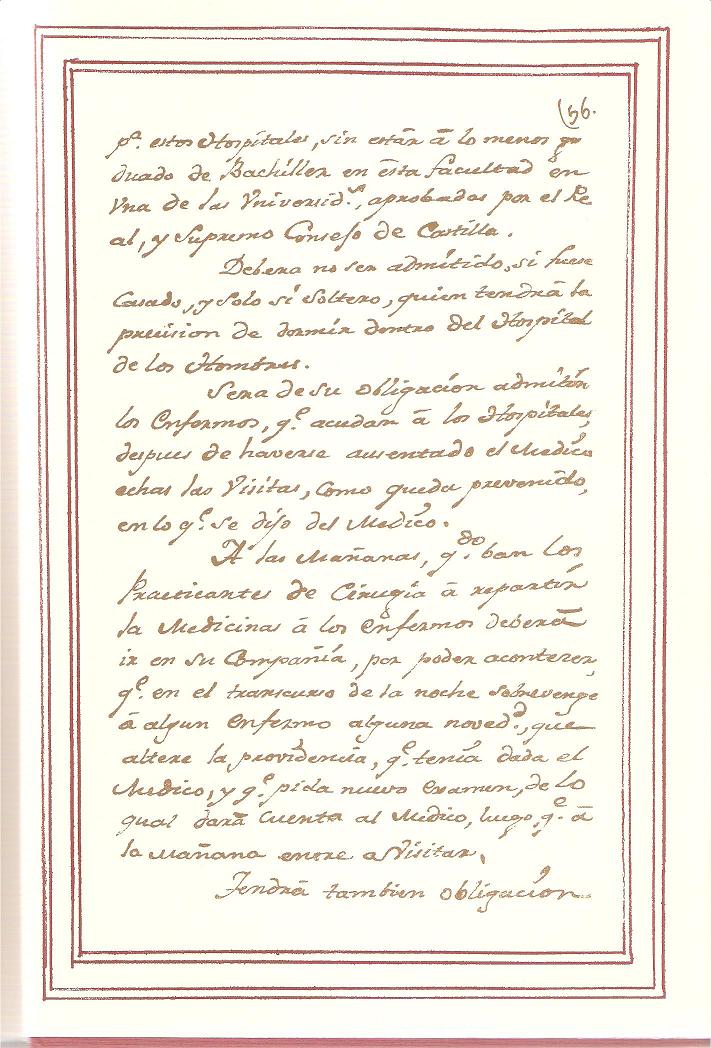 (56.
pª. estos Hospitales, sin estàr â lo menos gra
duado de Bachiller en esta facultad en
Vna de las Vniversid.s, aprobadas por el Re
al, y Supremo Consejo de Castilla.
Debera no ser admitido, si fuese
Casado, y solo sí Soltero, quien tendrâ la
precision de dormir dentro del Hospital
de los Hombres.
Sera de su obligacion admitir
los Enfermos, q.e acudan â los Hospitales,
despues de haverse ausentado el Medico
echas las Visitas, como queda prevenido,
en lo q.e se dijo del Medico.
A las Mañanas, q.do ban los
Practicantes de Cirugía â repartir
la Medicinas â los Enfermos deberâ
ir en su Compañía, por poder acontecer,
q.e en el transcurso de la noche sobrevenge
â algun Enfermo alguna noved.d, que
altere la providencia, q.e tenía dada el
Medico, y q.e pida nuevo examen, de lo
qual darâ Cuenta al Medico, luego, q.e â
la Mañana entre a Visitar.
Tendrâ tambien obligacion